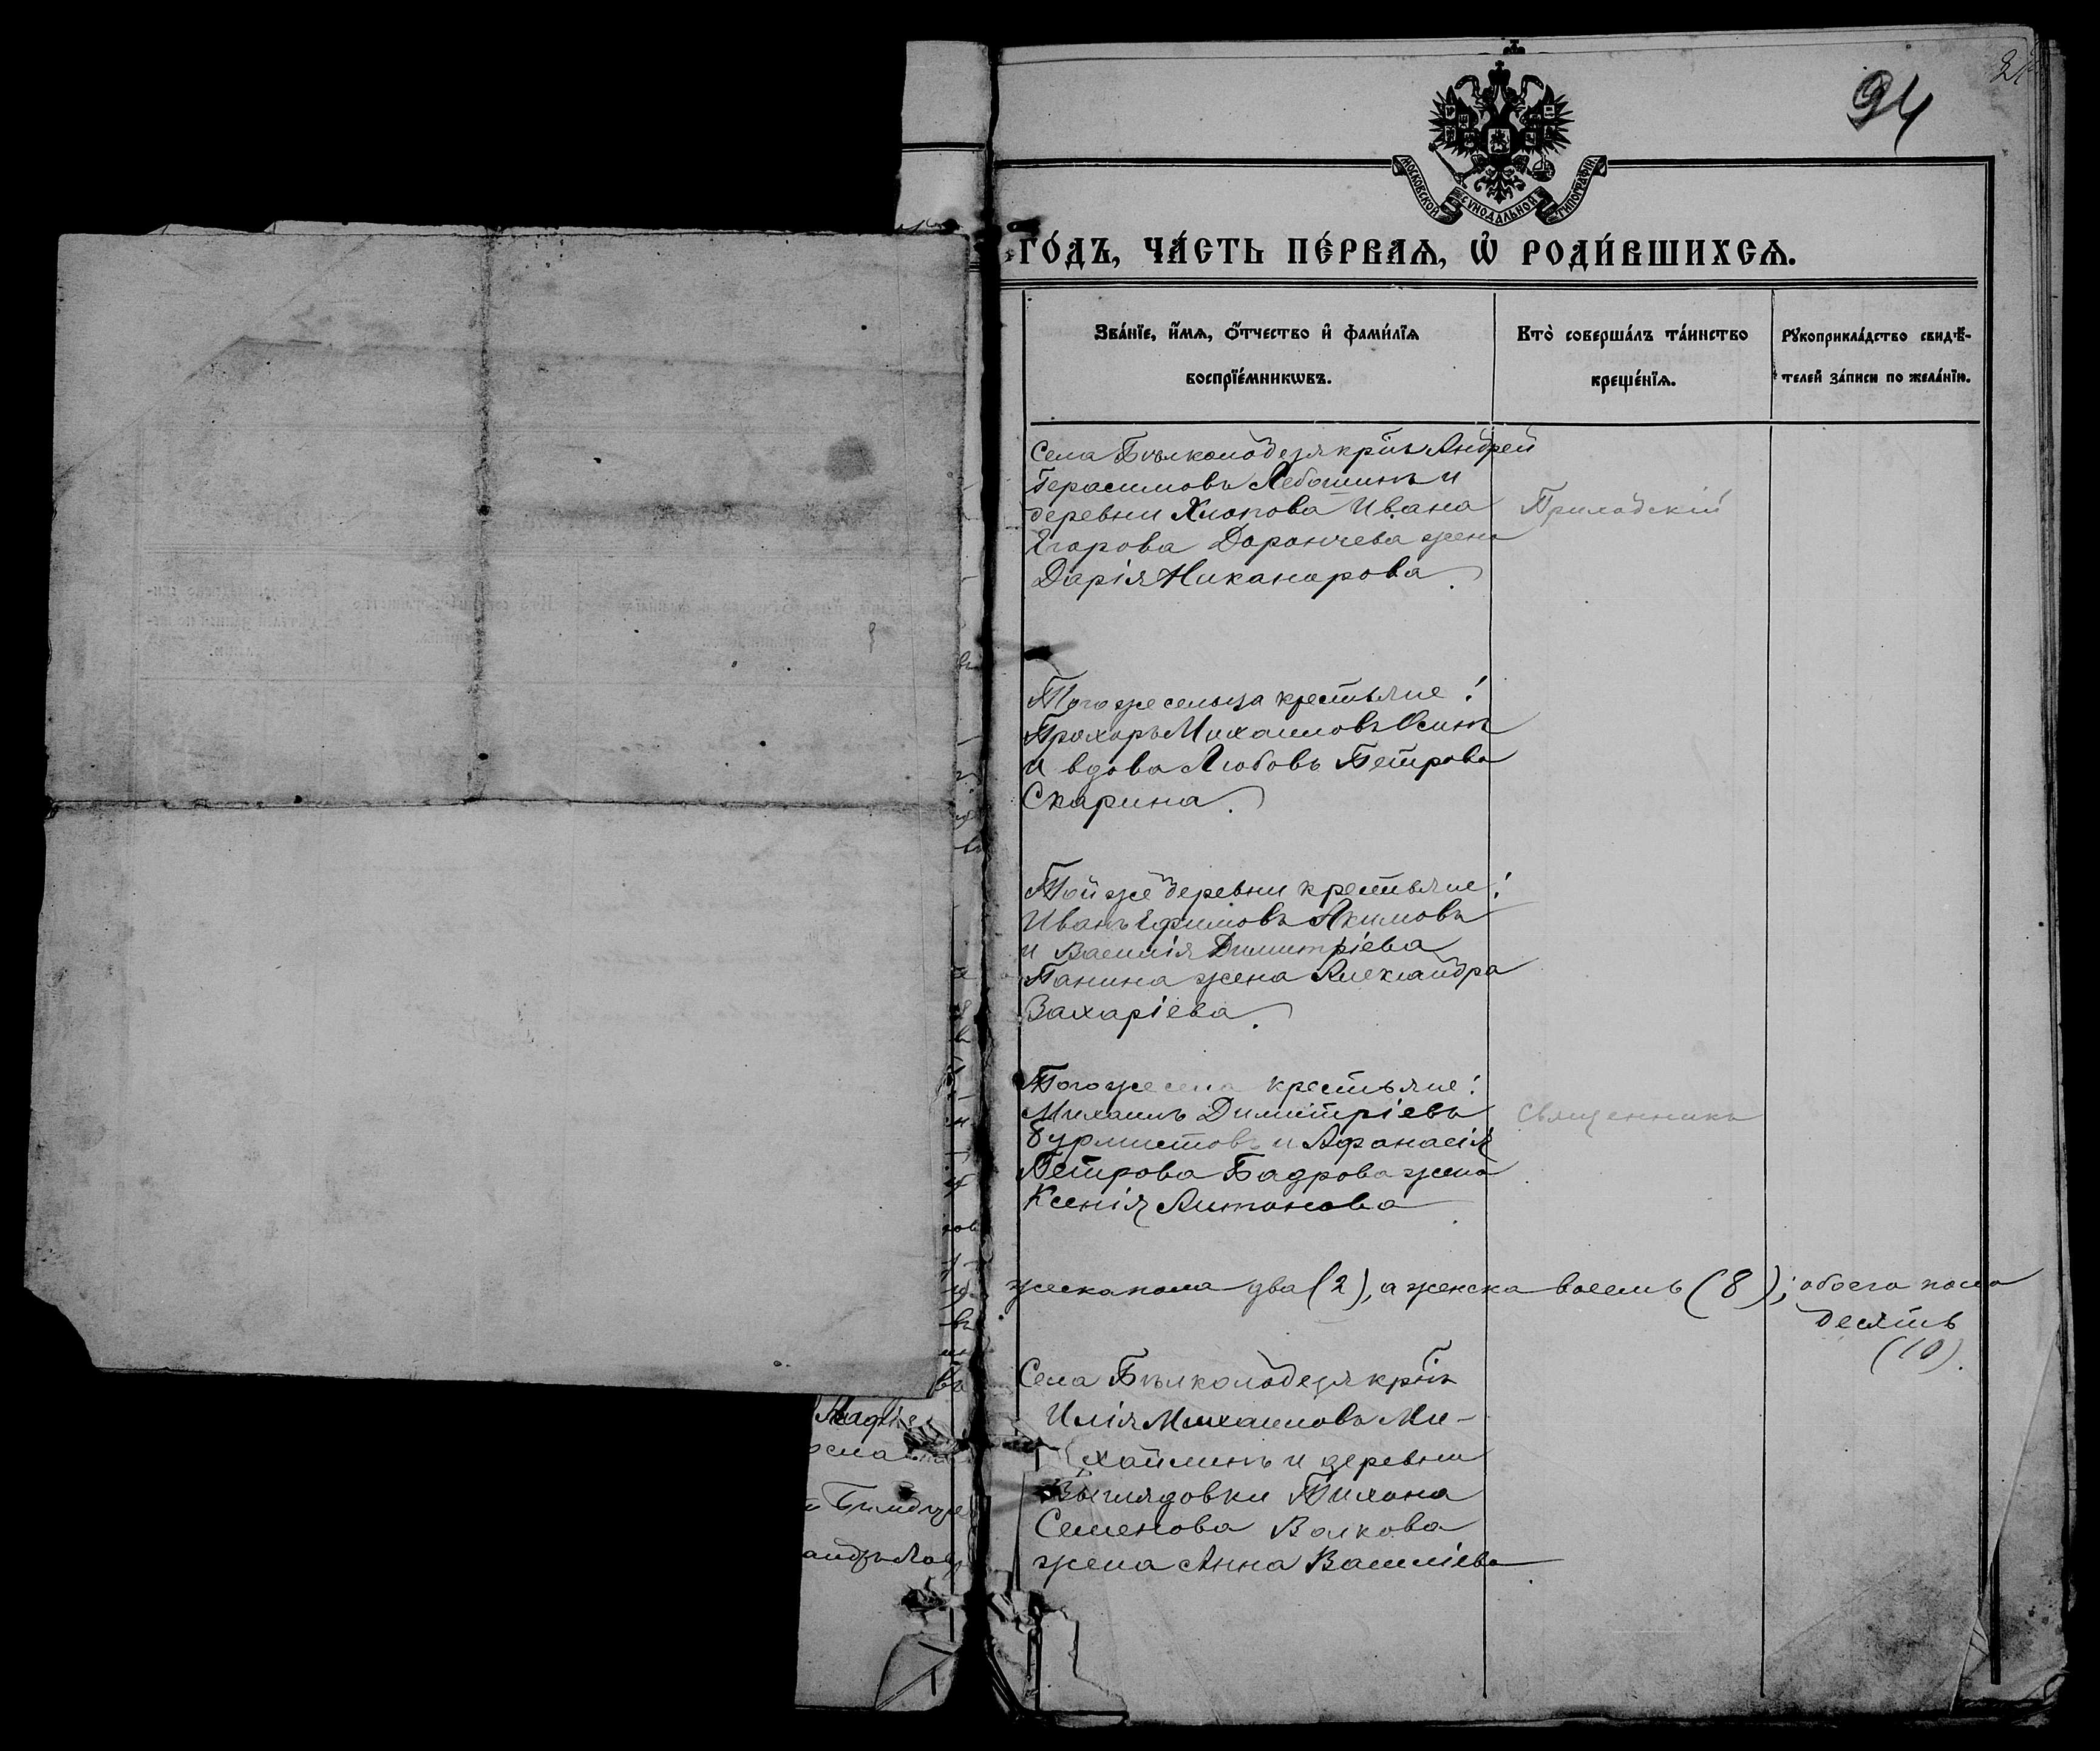 94
МОСКОВСКОЙ СѴНОДАЛЬНОЙ ТИПОГРАФІИ
ГО́ДЪ, ЧА́СТЬ ПЕ́РВАѦ, Ѡ҆ РОДИ́ВШИХСѦ.
Зва́нїе, и҆́мѧ, ѻ҆́тчество и҆ фами́лїѧ
воспрїе́мникѡвъ.
Кто̀ соверша́лъ та́инство
креще́нїѧ.
Рꙋкоприкла́дство свидѣ́-
телей за́писи по жела́нїю.
Села Бѣлколодезя кр̃нъ Андрей
Герасимовъ Лебошинъ и
деревни Хлопова Ивана
Егорова Дорончева жена
Дарія Никанорова.
Приходскій
Того же сельца крестьяне:
Прохоръ Михаиловъ Осинъ
и вдова Любовь Петрова
Скарина.
Той же деревни крестьяне:
Иванъ Ефимовъ Акимовъ
и Василія Димитріева
Панина жена Александра
Захаріева.
Того же села крестьяне:
Михаилъ Димитріевъ
Бурмистовъ и Афанасія
Петрова Бадрова жена
Ксенія Антонова
Священникъ
жеска пола два (2), а женска восемь (8); обоего пола
десять
(10).
Села Бѣлколодезя кр̃нъ
Илія Михаиловъ Ми-
хайлинъ и деревни
Выглядовки Тихона
Семенова Волкова
жена Анна Василіева